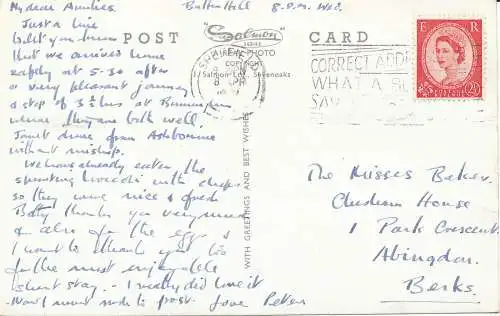 My dear Aunties,
Butters Hill 8.P.M. Wed.
Just a line
to let you know
that we arrived home
safely at 5-30 after
a very pleasant journey &
a stop of 3½ hrs at Birmingham
where they are both well
Janet drove from Ashbourne
without mishap.
We have already eaten the
sprouting broccoli with chops
so they were nice & fresh
Betty thanks you very much
& also for the eggs &
I want to thank you too
for the most enjoyable
short stay. - I really did love it
Now I must rush to post. Love Peter
POST CARD
"Salmon
SERIES
PHOTO
COPYRIGHT
J Salmon Ltd., Sevenoaks
WITH GREETINGS AND BEST WISHES
SHEFFIELD
CORRECT ADD
WHAT A
SAV
E R
2½D
The Misses Baker,
House
1 Park Crescent
Abingdon
Berks.